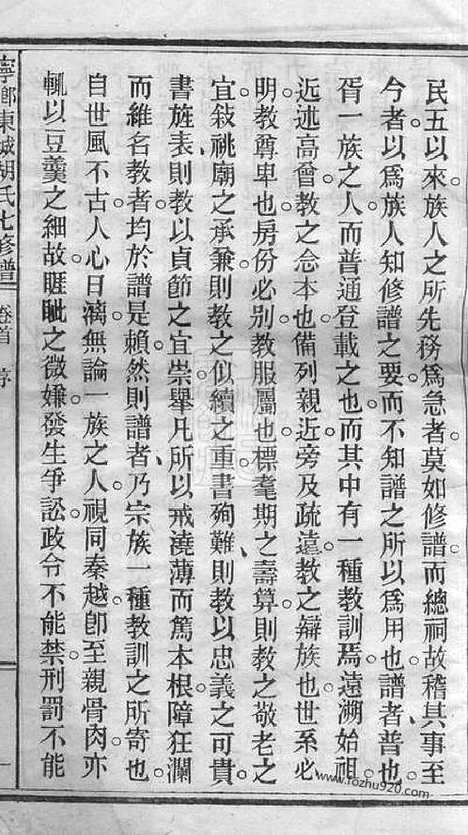 民五以來族人之所先務爲急者莫如修譜而總祠故稽其事至
今者以爲族人知修譜之要而不知譜之所以爲用也譜者普也
胥一族之人而普通登載之也而其中有一種教訓焉遠溯始祖
近述高曾教之念本也備列親近旁及疏遠教之辯族也世系必
明教尊卑也房份必别教服屬也標耄期之壽算則教之敬老之
宜敍祧廟之承兼則教之似續之重書殉難則教以忠義之可貴
書旌表則教以貞節之宜崇舉凡所以戒澆薄而篤本根障狂瀾
而維名教者均於譜是賴然則譜者乃宗族一種教訓之所寄也
自世風不古人心日漓無論一族之人視同秦越卽至親骨肉亦
輒以豆羹之細故睚眦之微嫌發生爭訟政令不能禁刑罰不能
寧鄉東城胡氏七修譜 卷首 序 一
www.fozhu920.com